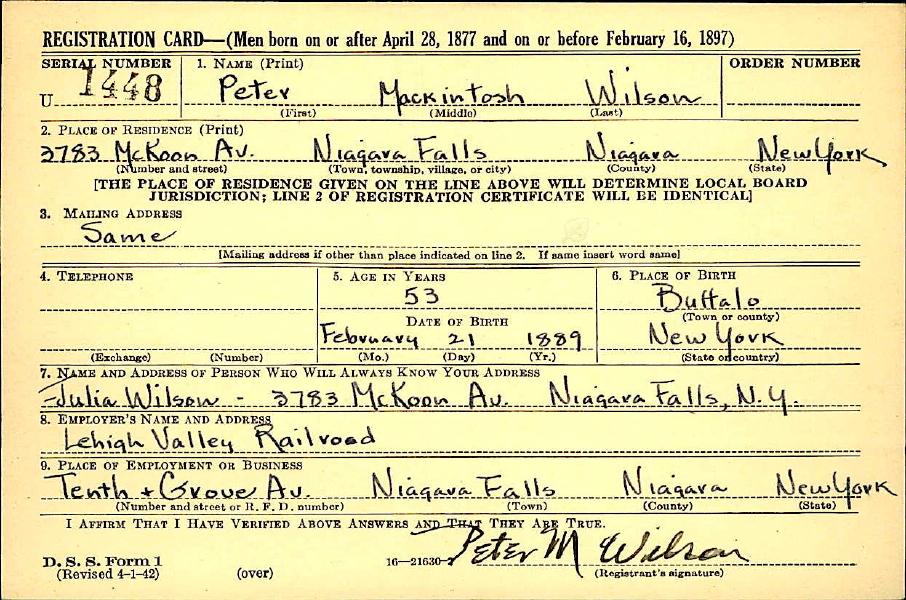 REGISTRATION CARD—(Men born on or after April 28, 1877 and on or before February 16, 1897)
SERIAL NUMBER 1. NAME (Print) ORDER NUMBER
U 1448 Peter Mackintosh Wilson
(First) (Middle) (Last)
2. PLACE OF RESIDENCE (Print)
3783 McKoon Av. Niagara Falls Niagara New York
(Number and street) (Town, township, village, or city) (County) (State)
[THE PLACE OF RESIDENCE GIVEN ON THE LINE ABOVE WILL DETERMINE LOCAL BOARD
JURISDICTION; LINE 2 OF REGISTRATION CERTIFICATE WILL BE IDENTICAL]
3. MAILING ADDRESS
Same
[Mailing address if other than place indicated on line 2. If same insert word same]
4. TELEPHONE 5. AGE IN YEARS 6. PLACE OF BIRTH
53 Buffalo
(Town or county)
DATE OF BIRTH
February 21 1889 New York
(Exchange) (Number) (Mo.) (Day) (Yr.) (State or country)
7. NAME AND ADDRESS OF PERSON WHO WILL ALWAYS KNOW YOUR ADDRESS
Julia Wilson - 3783 McKoon Av. Niagara Falls, N.Y.
8. EMPLOYER'S NAME AND ADDRESS
Lehigh Valley Railroad
9. PLACE OF EMPLOYMENT OR BUSINESS
Tenth + Grove Av. Niagara Falls Niagara New York
(Number and street or R. F. D. number) (Town) (County) (State)
I AFFIRM THAT I HAVE VERIFIED ABOVE ANSWERS AND THAT THEY ARE TRUE.
Peter M Wilson
D. S. S. Form 1 16—21630-2
(Revised 4-1-42) (over) (Registrant's signature)